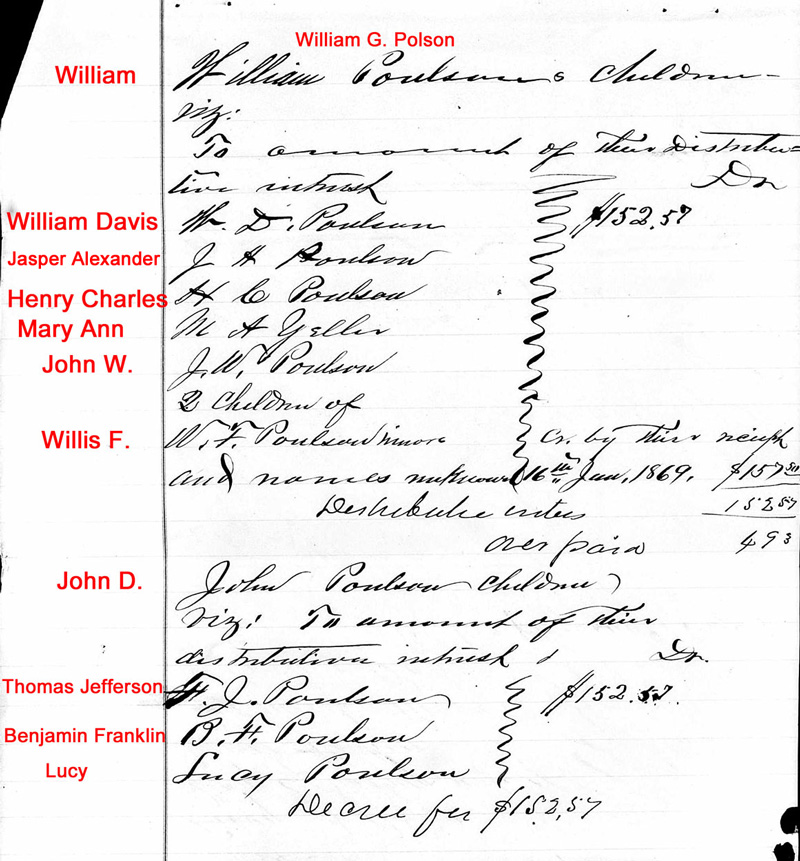 William G. Polson
William William Poulsons Children -
viz:
To amount of their Distribu=
tive intrust Dr
William Davis W. D. Poulson $152,57
Jasper Alexander J A Poulson
Henry Charles H C Poulson
Mary Ann M A Yeller
John W. J. W. Poulson
2 Children of
Willis F. W. F. Poulson Cr. by their
and names unknown 16th Jan, 1869. $157 50
Distributive 152 57
over paid 4 93
John D. John Poulson Children
viz: To amount of their
distribution intrust Dr.
Thomas Jefferson T. J. Poulson $152.57.
Benjamin Franklin B. F. Poulson
Lucy Lucy Poulson
Decree for $152,57